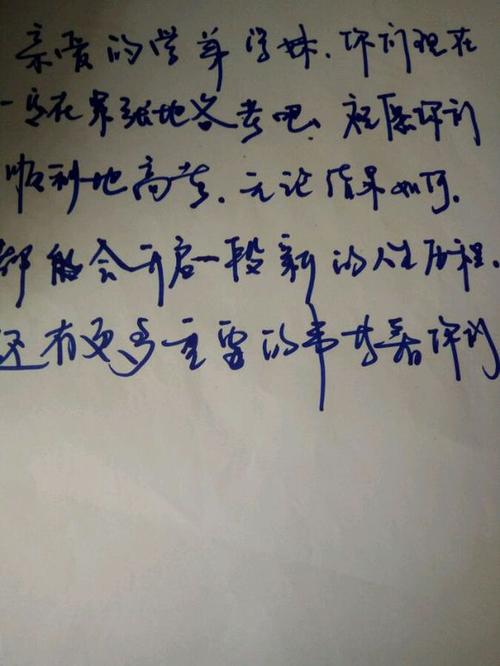 亲爱的学弟学妹，你们现在
一定在紧张地备考吧，祝愿你们
顺利地高考，无论结果如何，
都能会开启一段新的人生历程，
还有更多重要的事等着你们